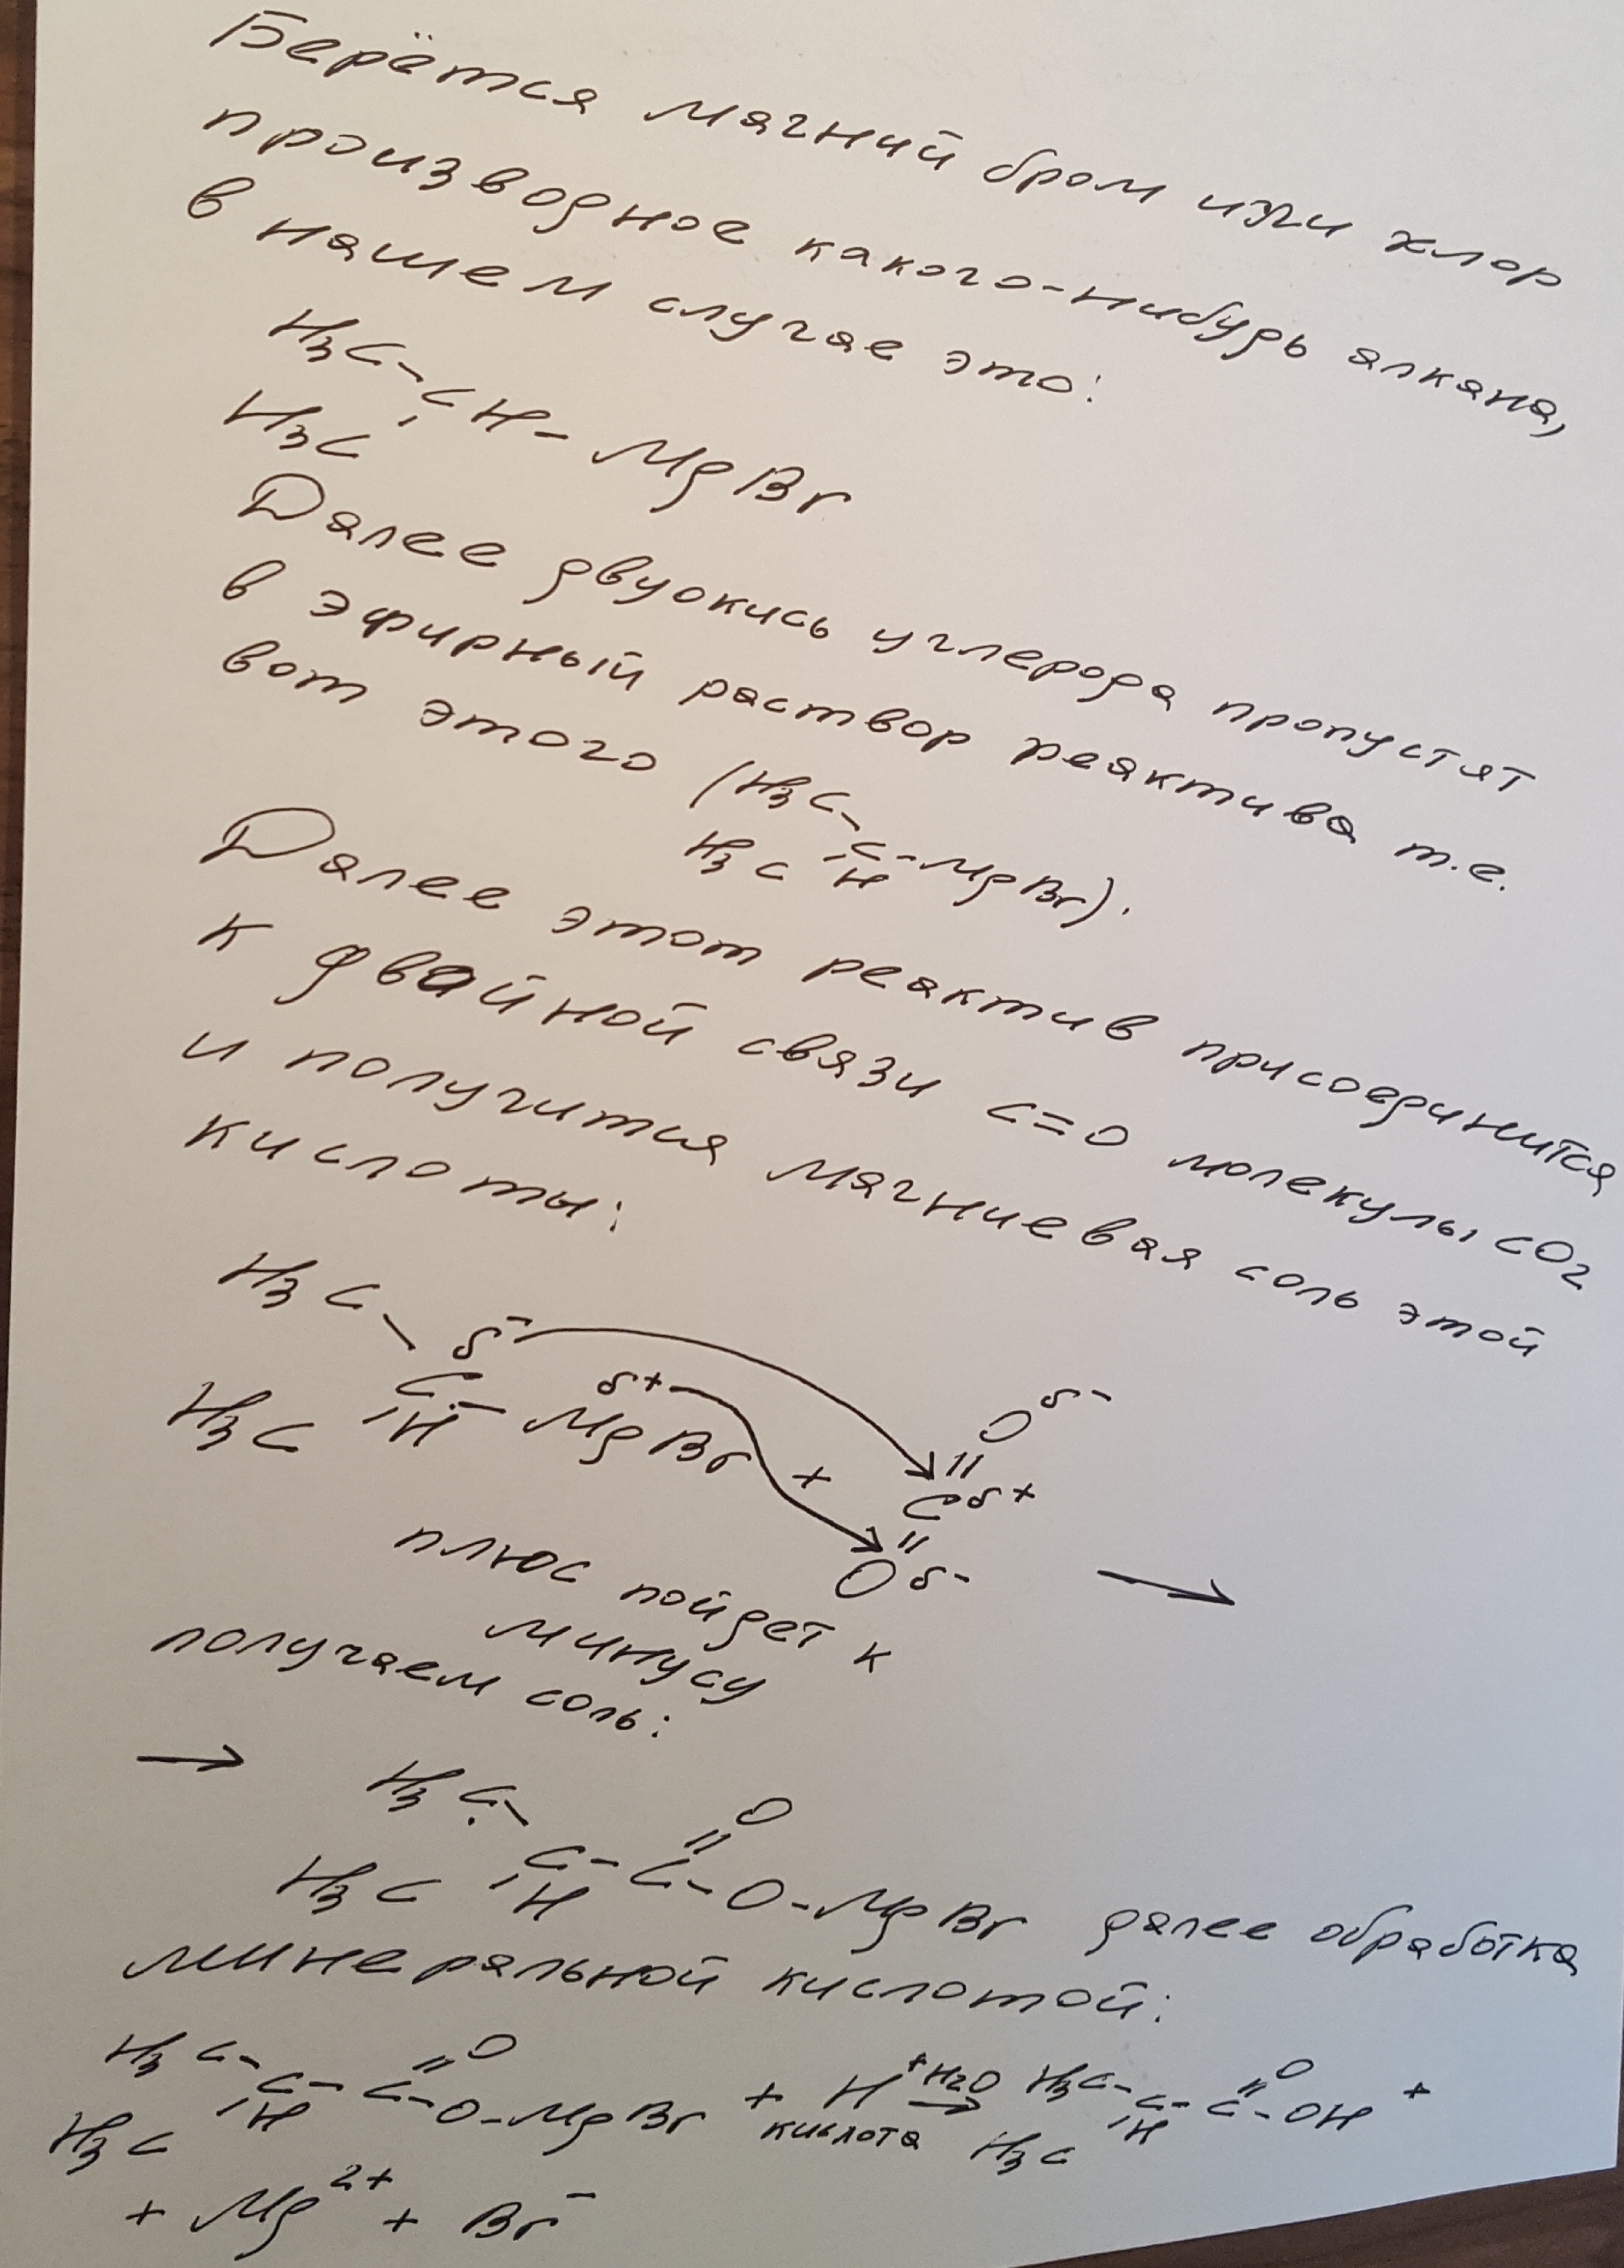 Берётся магний бром или хлор
производное какого-нибудь алкана,
в нашем случае это:
H3C-
CH-MgBr
H3C
Далее двуокись углерода пропустят
в эфирный раствор реактива т.е.
вот этого (H3C-
C-MgBr).
H3C H
Далее этот реактив присоединится
к двайной связи C=O молекулы CO2
и получится магниевая соль этой
кислоты:
H3C δ-
C-MgBr δ+ + O δ-
H3C H C δ+
O δ- →
плюс пойдет к
минусу
получаем соль:
→ H3C- O
C-C-O-MgBr далее обработка
H3C H
минеральной кислотой:
H3C- O
C-C-O-MgBr + H+ H2O → H3C- O
H3C H кислота C-C-OH +
H3C H
+ Mg2+ + Br-